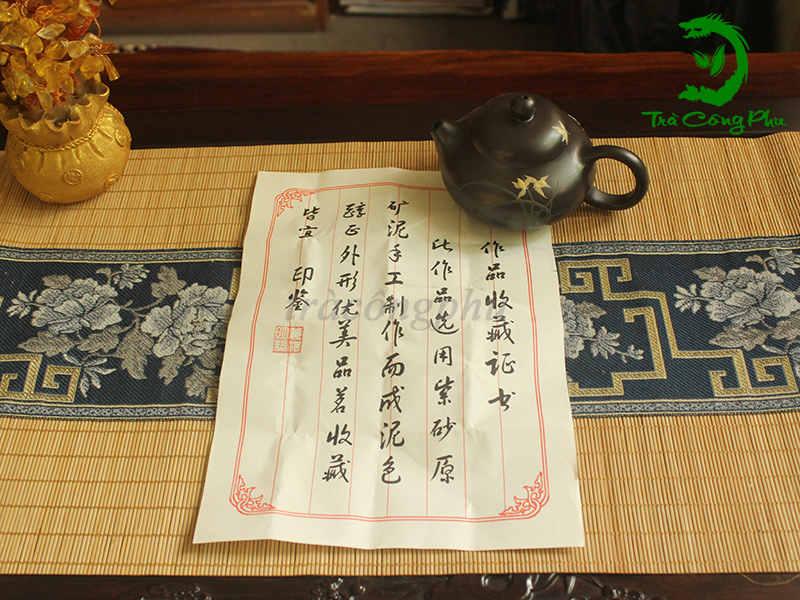 Trà Công Phu
作品收藏证书
此作品选用紫砂原
矿泥手工制作而成泥色
醇正外形优美品茗收藏
皆宜 印鉴
tràcôngphu